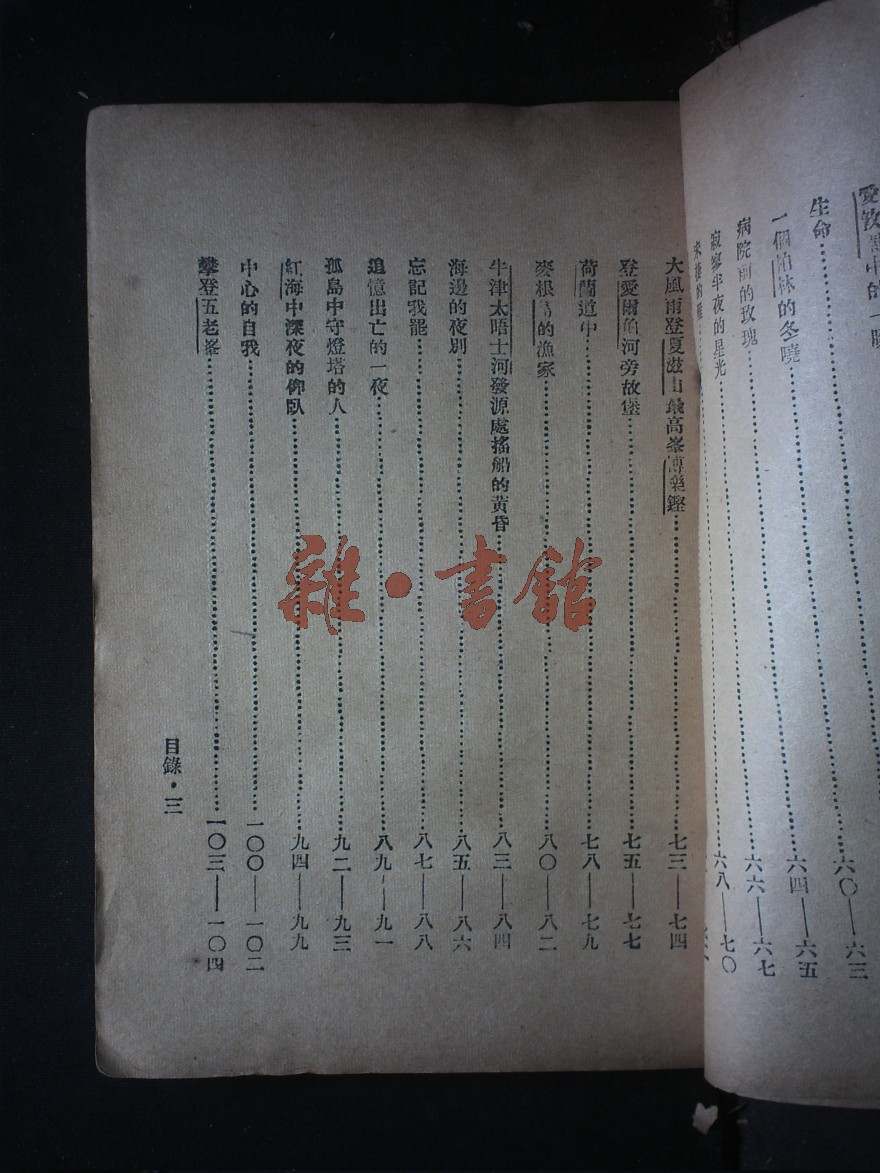 中的一
生命……六〇——六三
一個柏林的冬曉……六四——六五
病院前的玫瑰……六六——六七
寂寥半夜的星光……六八——七〇
大風雨登夏滋山最高峯……七三——七四
登愛爾伯河旁故堡……七五——七七
荷蘭道中……七八——七九
麥根島的漁家……八〇——八二
牛津太晤士河發源處搖船的黃昏……八三——八四
海邊的夜別……八五——八六
忘記我罷……八七——八八
追憶出亡的一夜……八九——九一
孤島中守燈塔的人……九二——九三
紅海中深夜的仰臥……九四——九九
中心的自我……一〇〇——一〇二
攀登五老峯……一〇三——一〇四
目錄·三
雜·書館